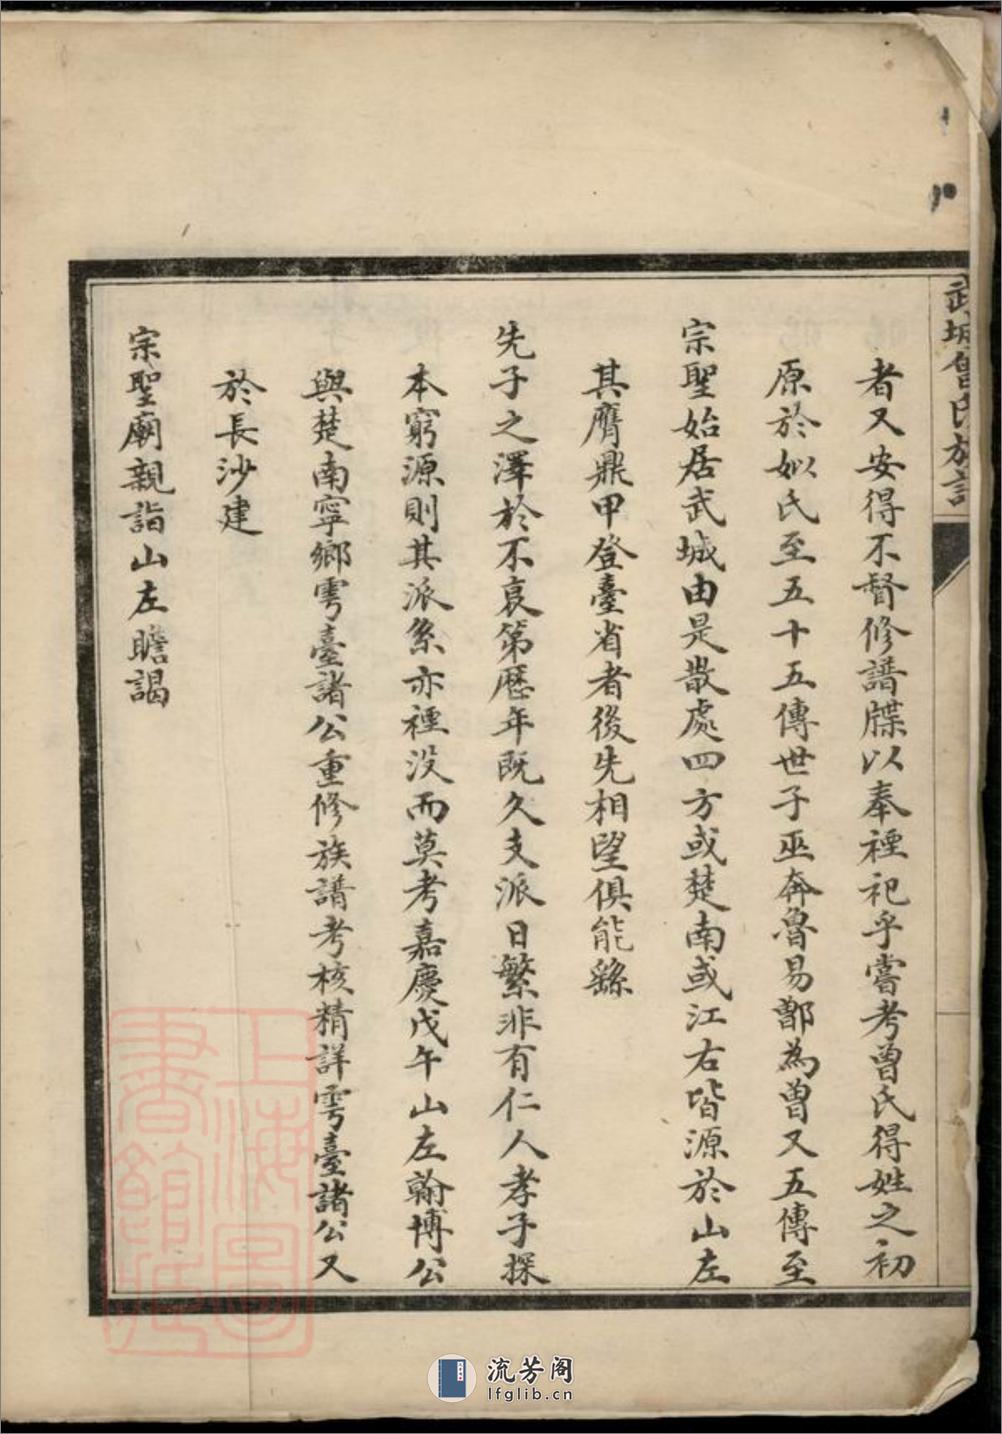 武城曾氏族譜
者又安得不督修譜牒以奉禋祀乎嘗考曾氏得姓之初
原於姒氏至五十五傳世子巫奔魯易鄫為曾又五傳至
宗聖始居武城由是散處四方或楚南或江右皆源於山左
其膺鼎甲登臺省者後先相望俱能繇
先子之澤於不衰第歷年既久支派日繁非有仁人孝子探
本窮源則其派系亦禋没而莫考嘉慶戊午山左翰博公
與楚南寧鄉雩臺諸公重修族譜考核精詳雩臺諸公又
於長沙建
宗聖廟親詣山左瞻謁
上海圖
書館藏
流芳阁
lfglib.cn